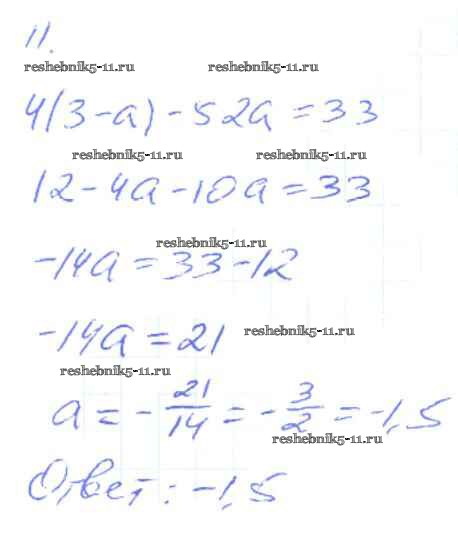 11.
reshebnik5-11.ru reshebnik5-11.ru
4(3-a)-52a=33
reshebnik5-11.ru reshebnik5-11.ru
12-4a-10a=33
reshebnik5-11.ru
-14a=33-12
-14a=21 reshebnik5-11.ru
reshebnik5-11.ru
a=-21/14=-3/2=-1,5
reshebnik5-11.ru
Ответ:-1,5